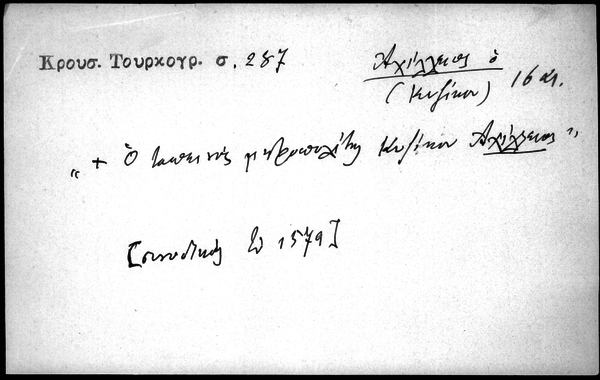 Κρουσ. Τουρκογρ. σ. 287
Ἀχίλλειος ὁ
(Κυζίκου) 16 αι.
„ + Ὁ ταπεινὸς μητροπολίτης Κυζίκου Ἀχίλλειος "
[συνοδικῶς ἐν 1579]